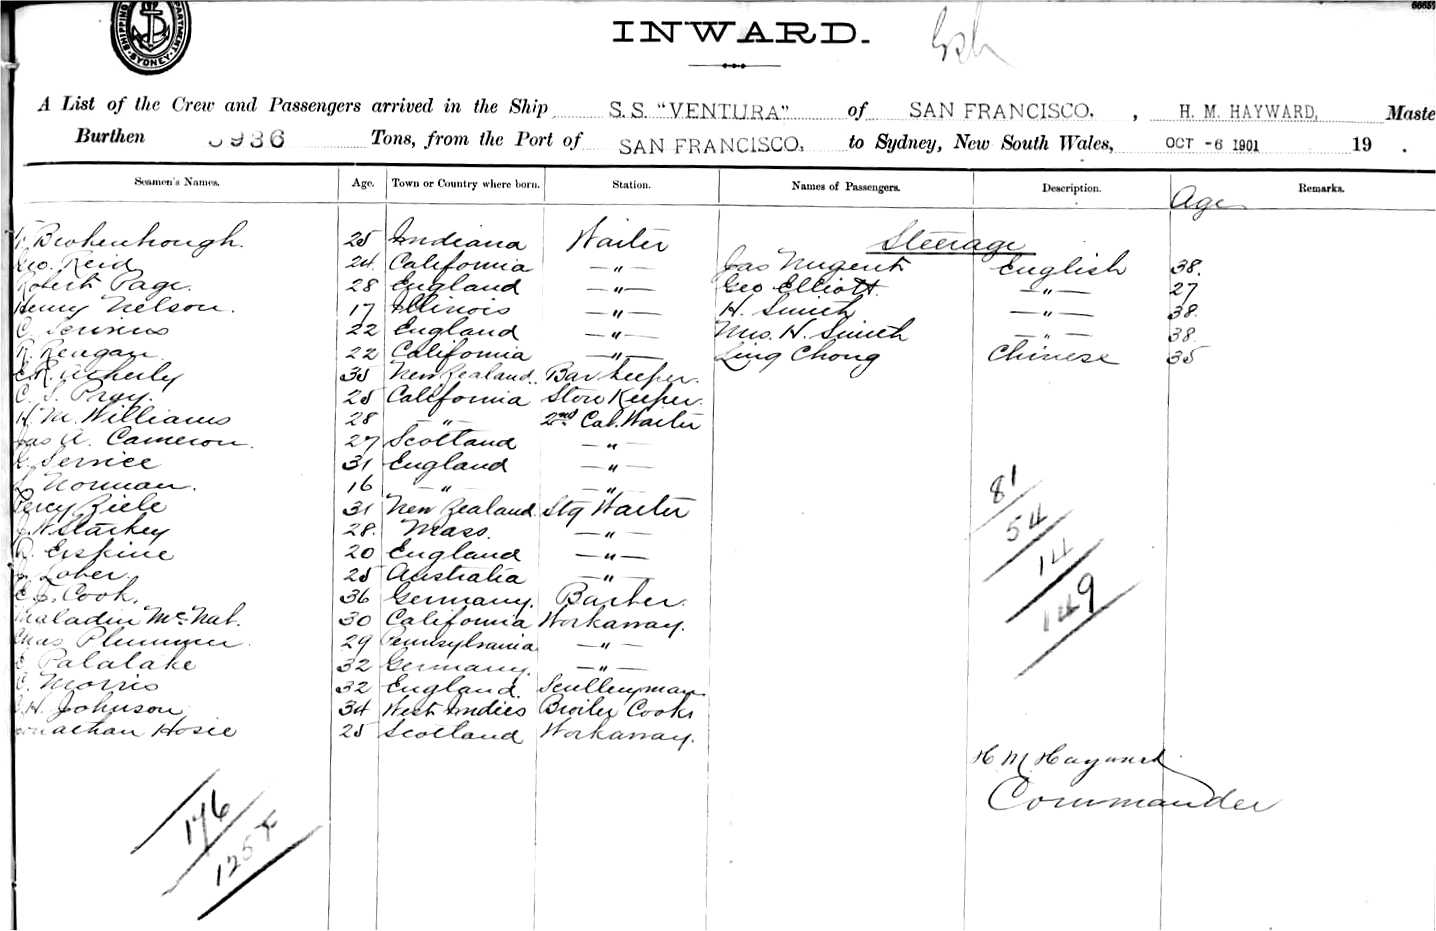 SHIPPING DEPARTMENT. SYDNEY
66657
INWARD.
A List of the Crew and Passengers arrived in the Ship S.S. "VENTURA" of SAN FRANCISCO. , H. M. HAYWARD, Maste
Burthen 936 Tons, from the Port of SAN FRANCISCO. to Sydney, New South Wales, OCT -6 1901 19 .
Seamen's Names. Age. Town or Country where born. Station. Names of Passengers. Description. Age Remarks.
25 Indiana Waiter Steerage
Geo. Reid 24 California —"— Jas Nugent English 38.
Robert Page. 28 England —"— Geo Elliott —"— 27
Henry Nelson. 17 Illinois —"— H. Smith —"— 38
C. 22 England —"— Mrs. H. Smith —"— 38
R. Reugan 22 California —"— Ling Chong Chinese 35
35 New Zealand. Bar keeper.
C. S. Pray. 25 California Store Keeper.
H. M. Williams 28 —"— 2nd Cab. Waiter
Jas A. Cameron. 27 Scotland —"—
Service 31 England —"—
Norman. 16 —"— —"—
Percy Ziele 31 New Zealand. Stg Waiter
Starkey 28. Mass. —"—
R. Erskine 20 England —"—
J. Lober. 25 Australia —"—
C. J. Cook. 36 Germany. Barber.
Maladin McNab. 30 California Workaway.
Chas Plummer. 29 Pennsylvania —"—
C. Palalake 32 Germany. —"—
C. Morris 32 England. Scullery man
H. Johnson 34 West Indies Broiler Cook
Jonathan Hosie 25 Scotland Workaway.
81
54
14
149
H. M. Hayward.
Commander
176
125